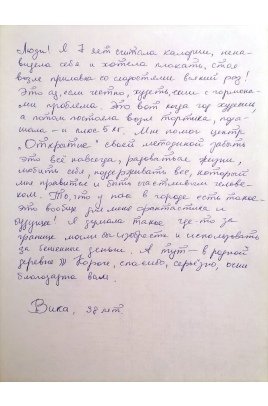 Люди! Я 7 лет считала калории, нена-
видела себя и хотела плакать, стоя
возле прилавка со сладостями всякий раз!
Это ад, если честно, худеть, если с гормона-
ми проблема. Это вот когда год худеешь,
а потом постояла возле тортика, поды-
шала - и плюс 5 кг. Мне помог центр
"Открытие" своей методикой забыть
это всё навсегда, радоваться жизни,
любить себя, поддерживать вес, который
мне нравится и быть счастливым челове-
ком. То, что у нас в городе есть такое -
это вообще для меня фантастика и
будущее! Я думала такое где-то за
границей могли бы изобрести и использовать
за бешенные деньги. А тут - в родной
деревне Короче, спасибо, серьёзно, очень
благодарна вам.
Вика, 38 лет.